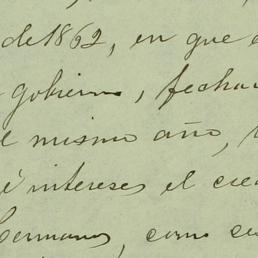 de 1862, en que
gobierno, fecha
mismo año,
intereses el
Hermanos, como